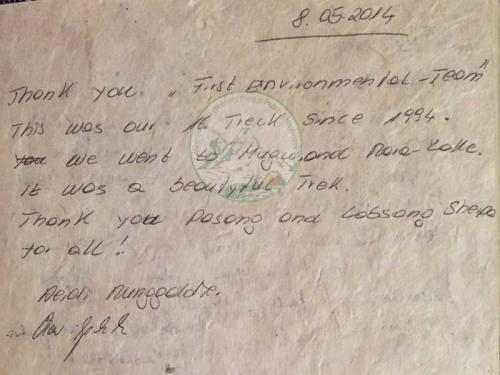 8.05.2014
Thank you „First Environmental-Team"
This was our 16 Treck since 1994.
we went to Mugu, and Rara-Lake.
It was a beautyful Trek.
Thank you Pasang and Lobsang Sherpa
for all!
Heidi